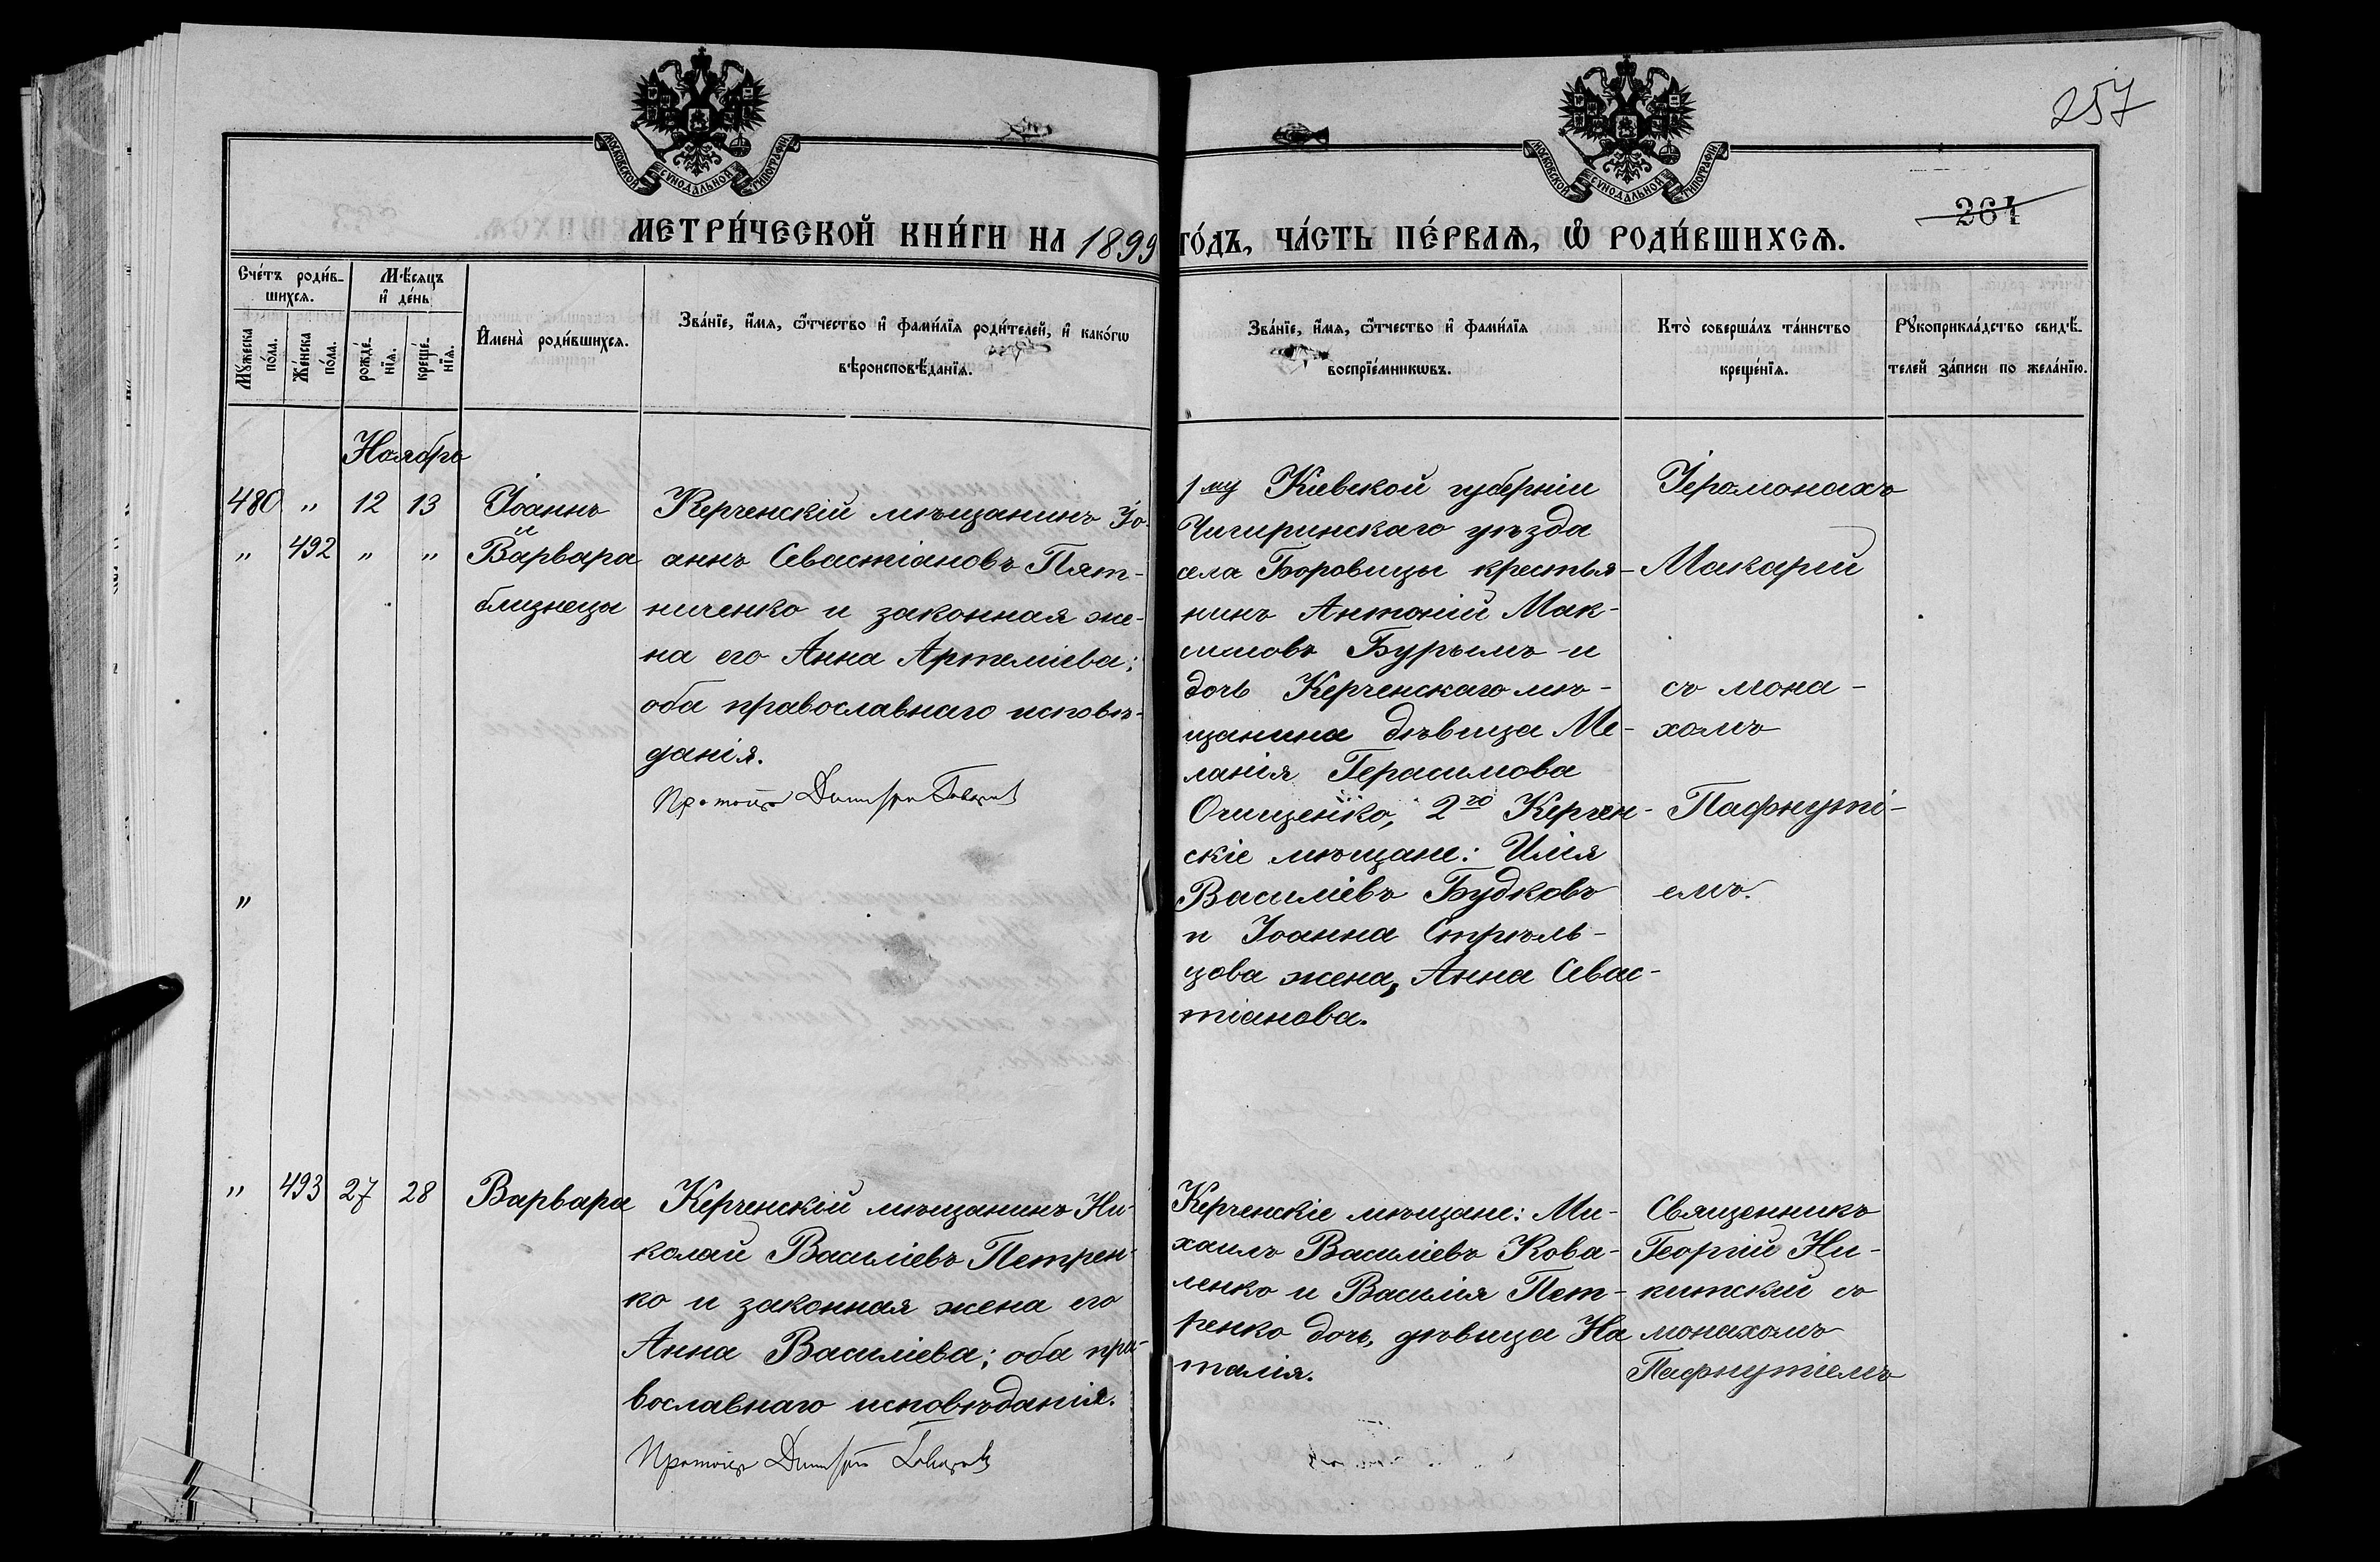 257
264
МОСКОВСКОЙ СѴНОДАЛЬНОЙ ТИПОГРАФІИ
МОСКОВСКОЙ СѴНОДАЛЬНОЙ ТИПОГРАФІИ
МЕТРИ́ЧЕСКОЙ КНИ́ГИ НА 1899 ГО́ДЪ, ЧА́СТЬ ПЕ́РВАѦ, Ѡ҆ РОДИ́ВШИХСѦ.
Сче́тъ роди́в-
шихсѧ.
Мꙋ́жеска по́ла.
Же́нска по́ла.
Мѣ́сѧцъ
и҆ де́нь
рожде́-
нїѧ.
креще́-
нїѧ.
И҆мена̀ роди́вшихсѧ.
Зва́нїе, и҆́мѧ, ѻ҆́тчество и҆ фами́лїѧ роди́телей, и҆ како́гѡ
вѣроисповѣ́данїѧ.
Зва́нїе, и҆́мѧ, ѻ҆́тчество и҆ фами́лїѧ
воспрїе́мникѡвъ.
Кто̀ соверша́лъ та́инство
креще́нїѧ.
Рꙋкоприкла́дство свидѣ́-
телей за́писи по жела́нїю.
Ноябрь
480 " 12 13 Іоаннъ
и
" 492 " " Варвара
близнецы
Керченскій мѣщанинъ Іо-
аннъ Севастіановъ Пят-
ниченко и законная же-
на его Анна Артеміева;
оба православнаго исповѣ-
данія.
Протоіер Димитрій
1му Кіевской губерніи
Чигиринскаго уѣзда
села Боровицы крестья-
нинъ Антоній Мак-
симовъ Бурымъ и
дочь Керченскаго мѣ-
щанина дѣвица Ме-
ланія Герасимова
Онищенко, 2го Керчен-
скіе мѣщане: Илія
Василіевъ Будковъ
и Іоанна Стрѣль-
цова жена, Анна Севас-
тіанова.
Іеромонахъ
Макарій
съ мона-
хомъ
Пафнуті-
емъ.
"
" 493 27 28 Варвара
Керченскій мѣщанинъ Ни-
колай Василіевъ Петрен-
ко и законная жена его
Анна Василіева; оба пра-
вославнаго исповѣданія.
Протоіер Димитрій
Керченскіе мѣщане: Ми-
хаилъ Василіевъ Кова-
ленко и Василія Пет-
ренко дочь, дѣвица На
талія.
Священникъ
Георгій Ни-
китскій съ
монахомъ
Пафнутіемъ